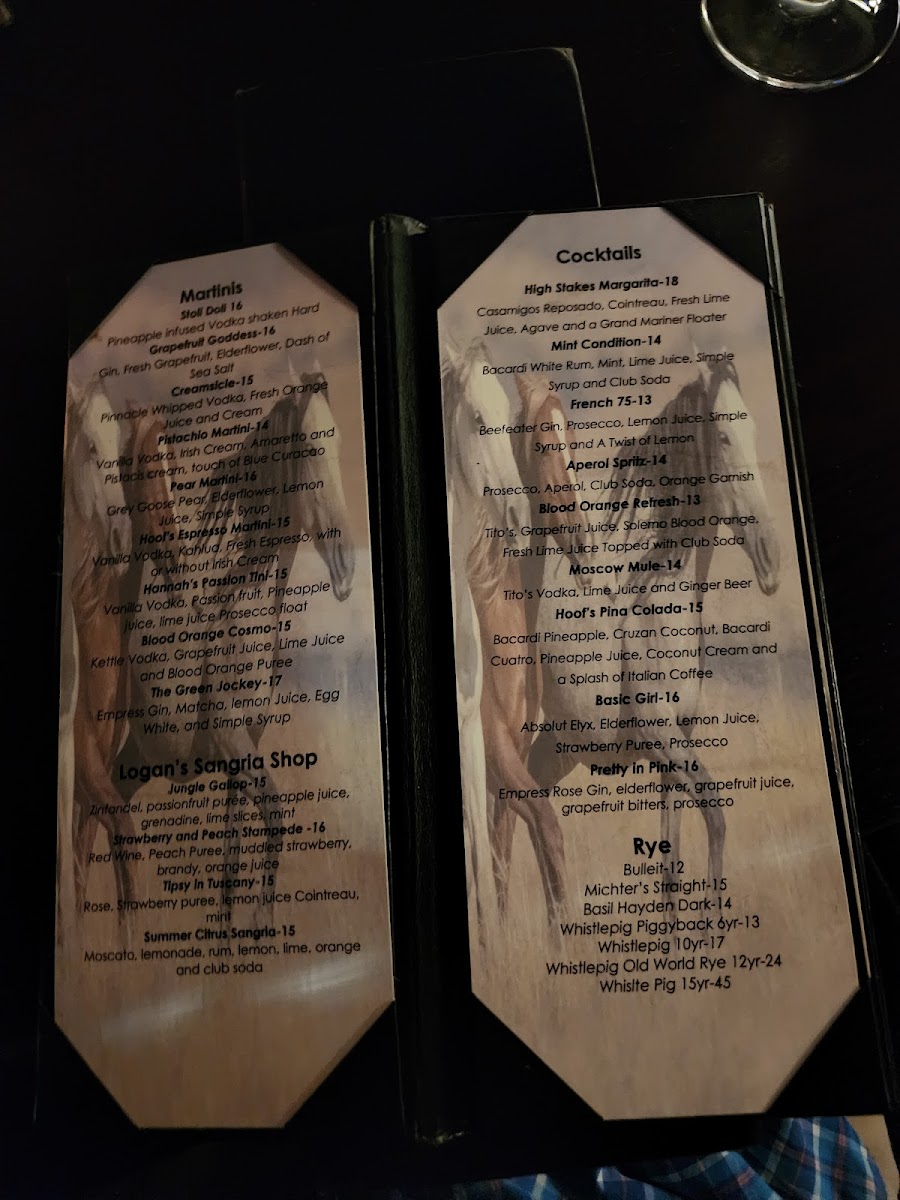 Martinis
Stoli Doli 16
Pineapple infused Vodka shaken Hard
Grapefruit Goddess-16
Gin, Fresh Grapefruit, Elderflower, Dash of
Sea Salt
Creamsicle-15
Pinnacle Whipped Vodka, Fresh Orange
Juice and Cream
Pistachio Martini-14
Vanilla Vodka, Irish Cream, Amaretto and
Pistacis cream, touch of Blue Curacao
Pear Martini-16
Grey Goose Pear, Elderflower, Lemon
Juice, Simple Syrup
Hoof's Espresso Martini-15
Vanilla Vodka, Kahlua, Fresh Espresso, with
or without Irish Cream
Hannah's Passion Tini-15
Vanilla Vodka, Passion fruit, Pineapple
juice, lime juice Prosecco float
Blood Orange Cosmo-15
Kettle Vodka, Grapefruit Juice, Lime Juice
and Blood Orange Puree
The Green Jockey-17
Empress Gin, Matcha, lemon Juice, Egg
White, and Simple Syrup
Logan's Sangria Shop
Jungle Gallop-15
Zinfandel, passionfruit purée, pineapple juice,
grenadine, lime slices, mint
Strawberry and Peach Stampede -16
Red Wine, Peach Puree, muddled strawberry,
brandy, orange juice
Tipsy in Tuscany-15
Rose, Strawberry puree, lemon juice Cointreau,
mint
Summer Citrus Sangria-15
Moscato, lemonade, rum, lemon, lime, orange
and club soda
Cocktails
High Stakes Margarita-18
Casamigos Reposado, Cointreau, Fresh Lime
Juice, Agave and a Grand Mariner Floater
Mint Condition-14
Bacardi White Rum, Mint, Lime Juice, Simple
Syrup and Club Soda
French 75-13
Beefeater Gin, Prosecco, Lemon Juice, Simple
Syrup and A Twist of Lemon
Aperol Spritz-14
Prosecco, Aperol, Club Soda, Orange Garnish
Blood Orange Refresh-13
Tito's, Grapefruit Juice, Solerno Blood Orange,
Fresh Lime Juice Topped with Club Soda
Moscow Mule-14
Tito's Vodka, Lime Juice and Ginger Beer
Hoof's Pina Colada-15
Bacardi Pineapple, Cruzan Coconut, Bacardi
Cuatro, Pineapple Juice, Coconut Cream and
a Splash of Italian Coffee
Basic Girl-16
Absolut Elyx, Elderflower, Lemon Juice,
Strawberry Puree, Prosecco
Pretty in Pink-16
Empress Rose Gin, elderflower, grapefruit juice,
grapefruit bitters, prosecco
Rye
Bulleit-12
Michter's Straight-15
Basil Hayden Dark-14
Whistlepig Piggyback 6yr-13
Whistlepig 10yr-17
Whistlepig Old World Rye 12yr-24
Whislte Pig 15yr-45